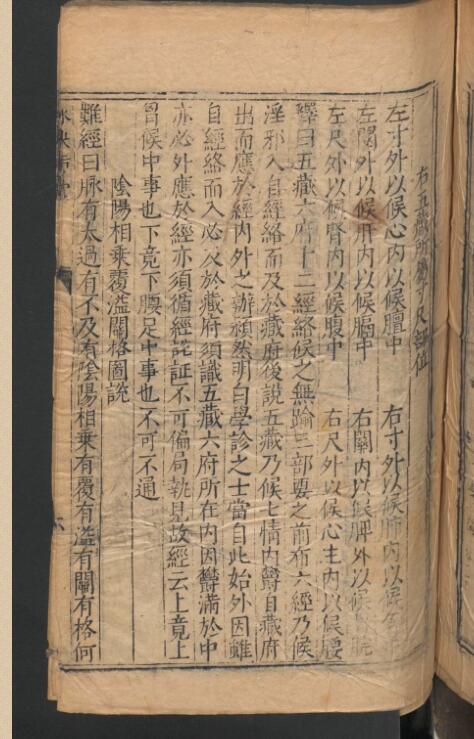 右五藏所屬寸尺部位
左寸外以候心內以候膻中　右寸外以候肺內以候
左關外以候肝內以候膈中　右關內以候脾外以候脘
左尺外以候腎內以候腹中　右尺外以候心主內以候腰
釋曰五藏六府十二經絡候之無踰三部要之前布六經乃候
淫邪入自經絡而及於藏府後說五藏乃候七情內欝自藏府
出而應於經內外之辦頹然明白學診之士當自此始外因雖
自經絡而入必及於藏府須識五藏六府所在內因欝滿於中
亦必外應於經亦須循經說証不可偏局執見故經云上竟上
胷候中事也下竟下腰足中事也不可不通
陰陽相乗覆溢關格圖說
難經曰脉有太過有不及有陰陽相乗有覆有溢有關有格何